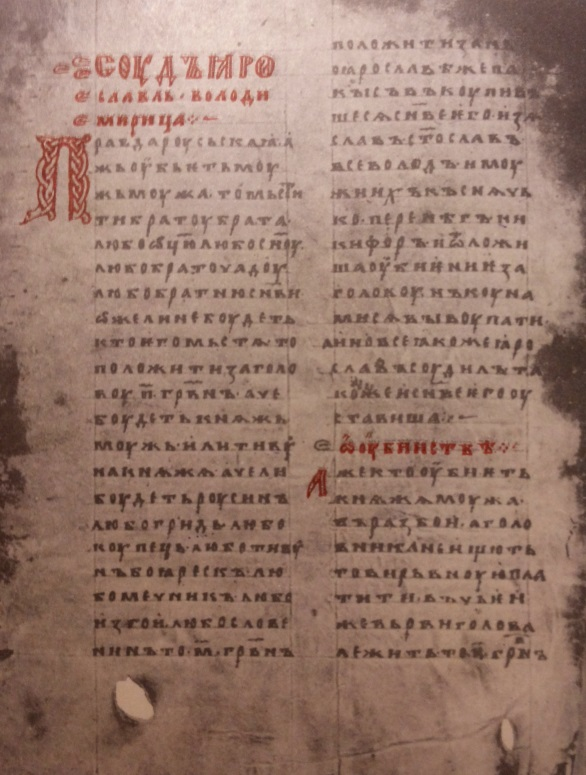 СОУДЪ ꙖРО
СЛАВЛЬ · ВОЛОДИ
МИРИЦА
Правда роусьскаꙗ · а
жь оубьѥть моу
жь моужа · то мьсти
ти братоу брата ·
любо ѿцю любо сн҃оу
любо братоучадоу
любо братню сн҃ви
ѡже ли не боудеть
кто ѥго мьстѧ · то
положити за голо
воу · п҃ · грвн҃ъ · аче
боудеть кнѧжь
моужь · или тивоу
на кнѧжѧ · аче ли
боудеть роусинъ
любо гридь · любо
коупець · любо тивоу
нъ боꙗрескъ · лю
бо мечникъ · любо
изгои · любо слове
нинъ то · м҃ · грвн҃ъ
положити за нь
по ꙗрославѣ же па
кы съвъкоупивъ
шесѧ сн҃ве ѥго · изѧ
славъ ст҃ославъ
всеволодъ и моу
жи ихъ къснѧчь
ко · перенѣгъ ни
кифоръ и ѿложи
ша оубиѥниѥ за
головоу · нъ коуна
ми сѧ выкоупати
а ино все ꙗкоже ꙗро
славъ соудилъ та
коже и сн҃ве ѥго оу
ставиша
ѡ оубииствѣ
Аже кто оубиѥть
кнѧжѧ моужа ·
въ разбои · а голо
вника не ищють
то вирьвноую пла
тити · въ чьѥи
же вьрви голова
лежить то п҃ · грвн҃ъ